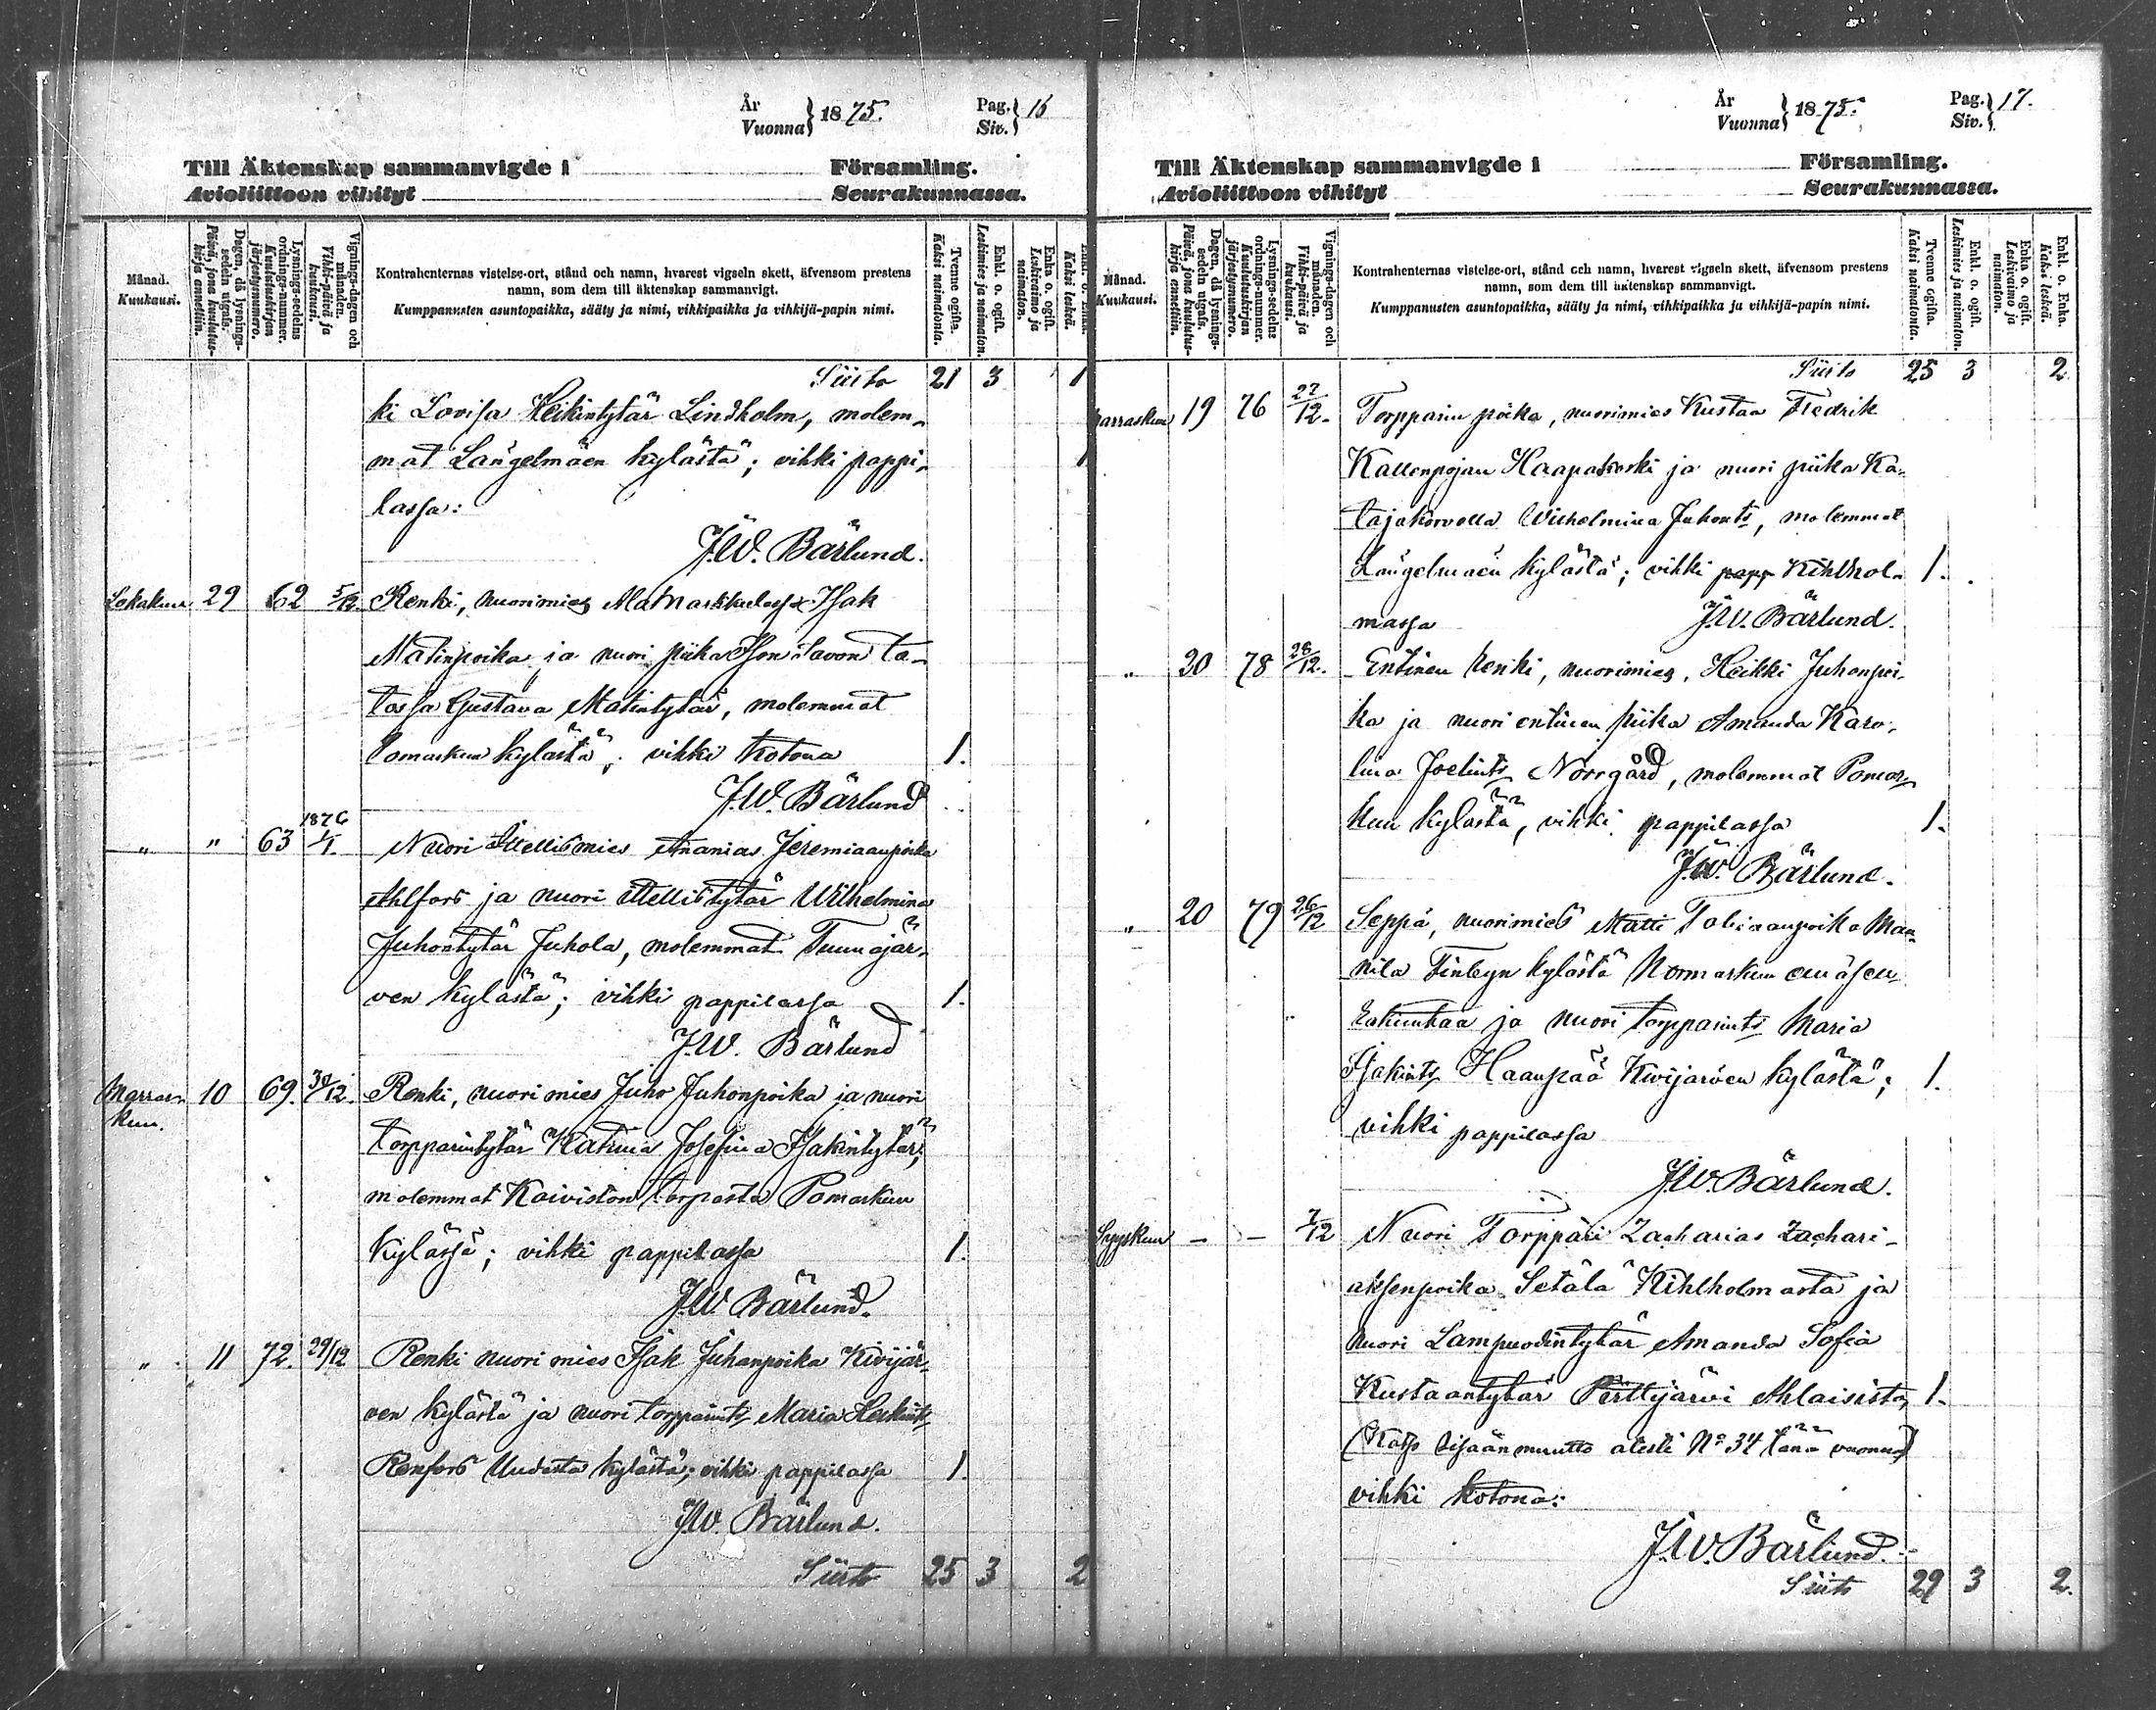 År
Vuonna } 1875.
Pag.
Siv. } 16
Till Äktenskap sammanvigde i Församling.
Avioliittoon vihityt Seurakunnassa.
Månad.
Kuukausi.
Dagen, då lysningssedeln utgafs.
Päivä, jona kuulutuskirja annettiin.
Lysnings-sedelns ordnings-nummer.
Kuulutuskirjan järjestysnumero.
Vignings-dagen och månaden.
Vihki-päivä ja kuukausi.
Kontrahenternas vistelse-ort, stånd och namn, hvarest vigseln skett, äfvensom prestens
namn, som dem till äktenskap sammanvigt.
Kumppanusten asuntopaikka, sääty ja nimi, vihkipaikka ja vihkijä-papin nimi.
Tvenne ogifta.
Kaksi naimatonta.
Enkl. o. ogift.
Leskimies ja naimaton.
Enka o. ogift.
Leskivaimo ja naimaton.
Enkl. o. Enka.
Kaksi leskeä.
Siirto 21 3 1
ki Lovisa Heikintytär Lindholm, molem-
mat Längelmäen kylästä; vihki pappi- 1
lassa:
J.W. Bärlund.
Lokakuu 29 62 5/12. Renki, nuorimies Isak
Matinpoika ja nuori piika ta-
lossa Gustava Matintytär, molemmat
Pomarkun kylästä; vihki kotona 1.
J.W. Bärlund
" " 63 1876 1/1. Nuori Itellismies Ananias Jeremiaanpoika
Ahlfors ja nuori itellistytär Wilhelmina
Juhontytär Juhola, molemmat Tuunajär-
ven kylästä; vihki pappilassa 1.
J.W. Bärlund
Marras-
kuu. 10 69. 30/12. Renki, nuori mies Juho Juhonpoika ja nuori
torpparintytär Katrina Josefina Isakintytär;
molemmat Koiviston torpasta Pomarkun
Kylässä; vihki pappilassa 1.
J.W. Bärlund.
" 11 72. 29/12 Renki nuori mies Isak Juhanpoika Kivijär-
ven kylästä ja nuori Maria
Renfors Uudesta kylästä; vihki pappilassa 1.
J.W. Bärlund.
Siirto 25 3 2
År
Vuonna } 1875.
Pag.
Siv. } 17.
Till Äktenskap sammanvigde i Församling.
Avioliittoon vihityt Seurakunnassa.
Månad.
Kuukausi.
Dagen, då lysningssedeln utgafs.
Päivä, jona kuulutuskirja annettiin.
Lysnings-sedelns ordnings-nummer.
Kuulutuskirjan järjestysnumero.
Vignings-dagen och månaden.
Vihki-päivä ja kuukausi.
Kontrahenternas vistelse-ort, stånd och namn, hvarest vigseln skett, äfvensom prestens
namn, som dem till äktenskap sammanvigt.
Kumppanusten asuntopaikka, sääty ja nimi, vihkipaikka ja vihkijä-papin nimi.
Tvenne ogifta.
Kaksi naimatonta.
Enkl. o. ogift.
Leskimies ja naimaton.
Enka o. ogift.
Leskivaimo ja naimaton.
Enkl. o. Enka.
Kaksi leskeä.
Siirto 25 3 2
Marraskuu 19 76 27/12. Torpparin poika, nuorimies Kustaa Fredrik
Kallenpojan Haapakoski ja nuori piika Ka-
tajakorvolla Wilhelmina Juhonts, molemmat
Längelmäen kylästä; vihki papp Kihlhol- 1.
massa J.W. Bärlund.
" 20 78 28/12. Entinen renki, nuorimies, Heikki Juhonpoi-
ka ja nuori entinen piika Amanda Karo-
lina Norrgård, molemmat Pomar-
kun kylästä, vihki pappilassa 1.
J.W. Bärlund.
" 20 79 26/12 Seppä, nuorimies Matti Tobiaanpoika Man-
nila Finbyn kylästä Normarkun emäseu-
rakuntaa ja nuori torpparints Maria
Isakints Haanpää Kivijärven kylästä; 1.
vihki pappilassa
J.W. Bärlund.
Syyskuu - - 7/12 Nuori Torppari Zacharias Zachari-
aksenpoika Setälä Kihlholmasta ja
nuori Lampuodintytär Amanda Sofia
Kustaantytär Perttijärvi Ahlaisista, 1.
(Kats sisäänmuutto atesti No 34 tänä vuonna)
vihki kotona:
J.W. Bärlund.
Siirto 29 3 2.